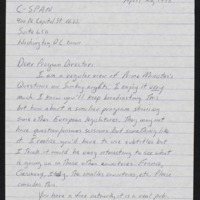 C-SPAN
400 N. Capitol St. N.W.
Suite 650
Washington D.C. 20001
Dear Program Director:
I am a regular view of Prime Minister's
Questions on Sunday nights. I enjoy it very
much. I know you'll keep broadcasting this
but how about a similar program showing
some other European legislatures, they may not
have question-formats but something like
it. I realize you'd have to use subtitles but
I think it would be very interesting to see what
is going on in these other countries. France,
Germany, Italy, the smaller countries, etc. Please
consider this.
You have a fine network, it is a real